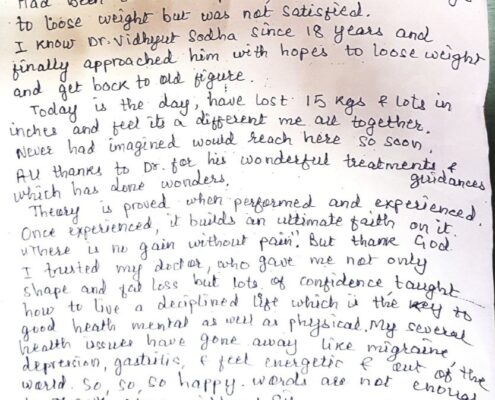 Had been
to loose weight but was not satisfied.
I know Dr. Vidhyut Sodha since 18 years and
finally approached him with hopes to loose weight
and get back to old figure.
Today is the day, have lost 15 kgs & lots in
inches and feel its a different me all together.
Never had imagined would reach here so soon,
All thanks to Dr. for his wonderful treatments &
guidances
which has done wonders.
Theory is proved when performed and experienced.
Once experienced, it builds an ultimate faith on it.
"There is no gain without pain". But thank God
I trusted my doctor, who gave me not only
shape and fat loss but lots of confidence, taught
how to live a deciplined life which is the key to
good heath mental as well as physical. My several
health issues have gone away like migraine,
depression, gastritis, & feel energetic & out of the
world. So, so, so happy. words are not enough